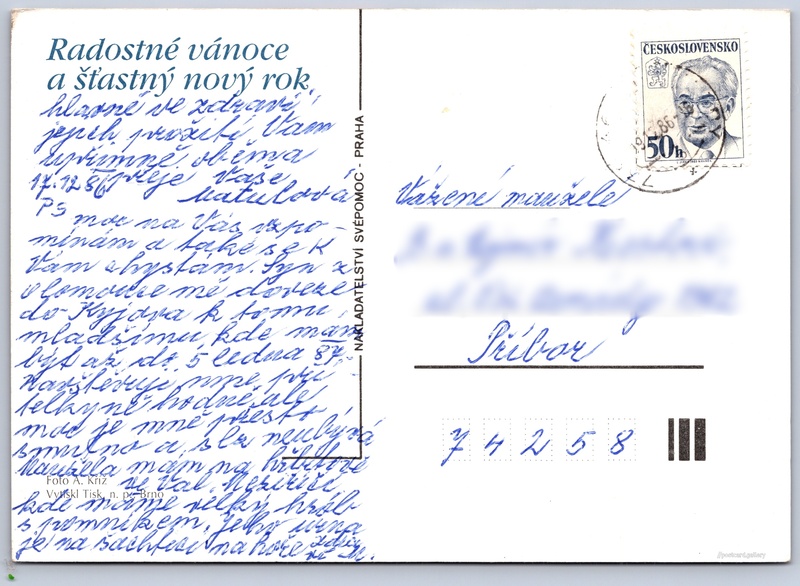 Radostné vánoce
a šťastný nový rok
hlavně ve zdraví
jejich prožití Vám
upřímně oběma
17.12.86 přeje Vaše
Matulová
PS
moc na Vás vzpo-
mínám a také se k
Vám chystám. Syn z
Olomouce mě doveze
do Kyjova k tomu
mladšímu, kde mám
být až do 5 ledna 87.
navštěvují mne pří-
telkyně hodně, ale
moc je mně přesto
smutno a sil neubývá
Manžela mám na hřbitově
ve Val. Meziříčí
kde máme velký hrob
s pomníkem, jeho urna
je na šachtici nahoře
Foto A. Kříž
Vytiskl Tisk, n. p. Brno
NAKLADATELSTVÍ SVÉPOMOC - PRAHA
ČESKOSLOVENSKO
50h
Vážení manželé
Příbor
74258